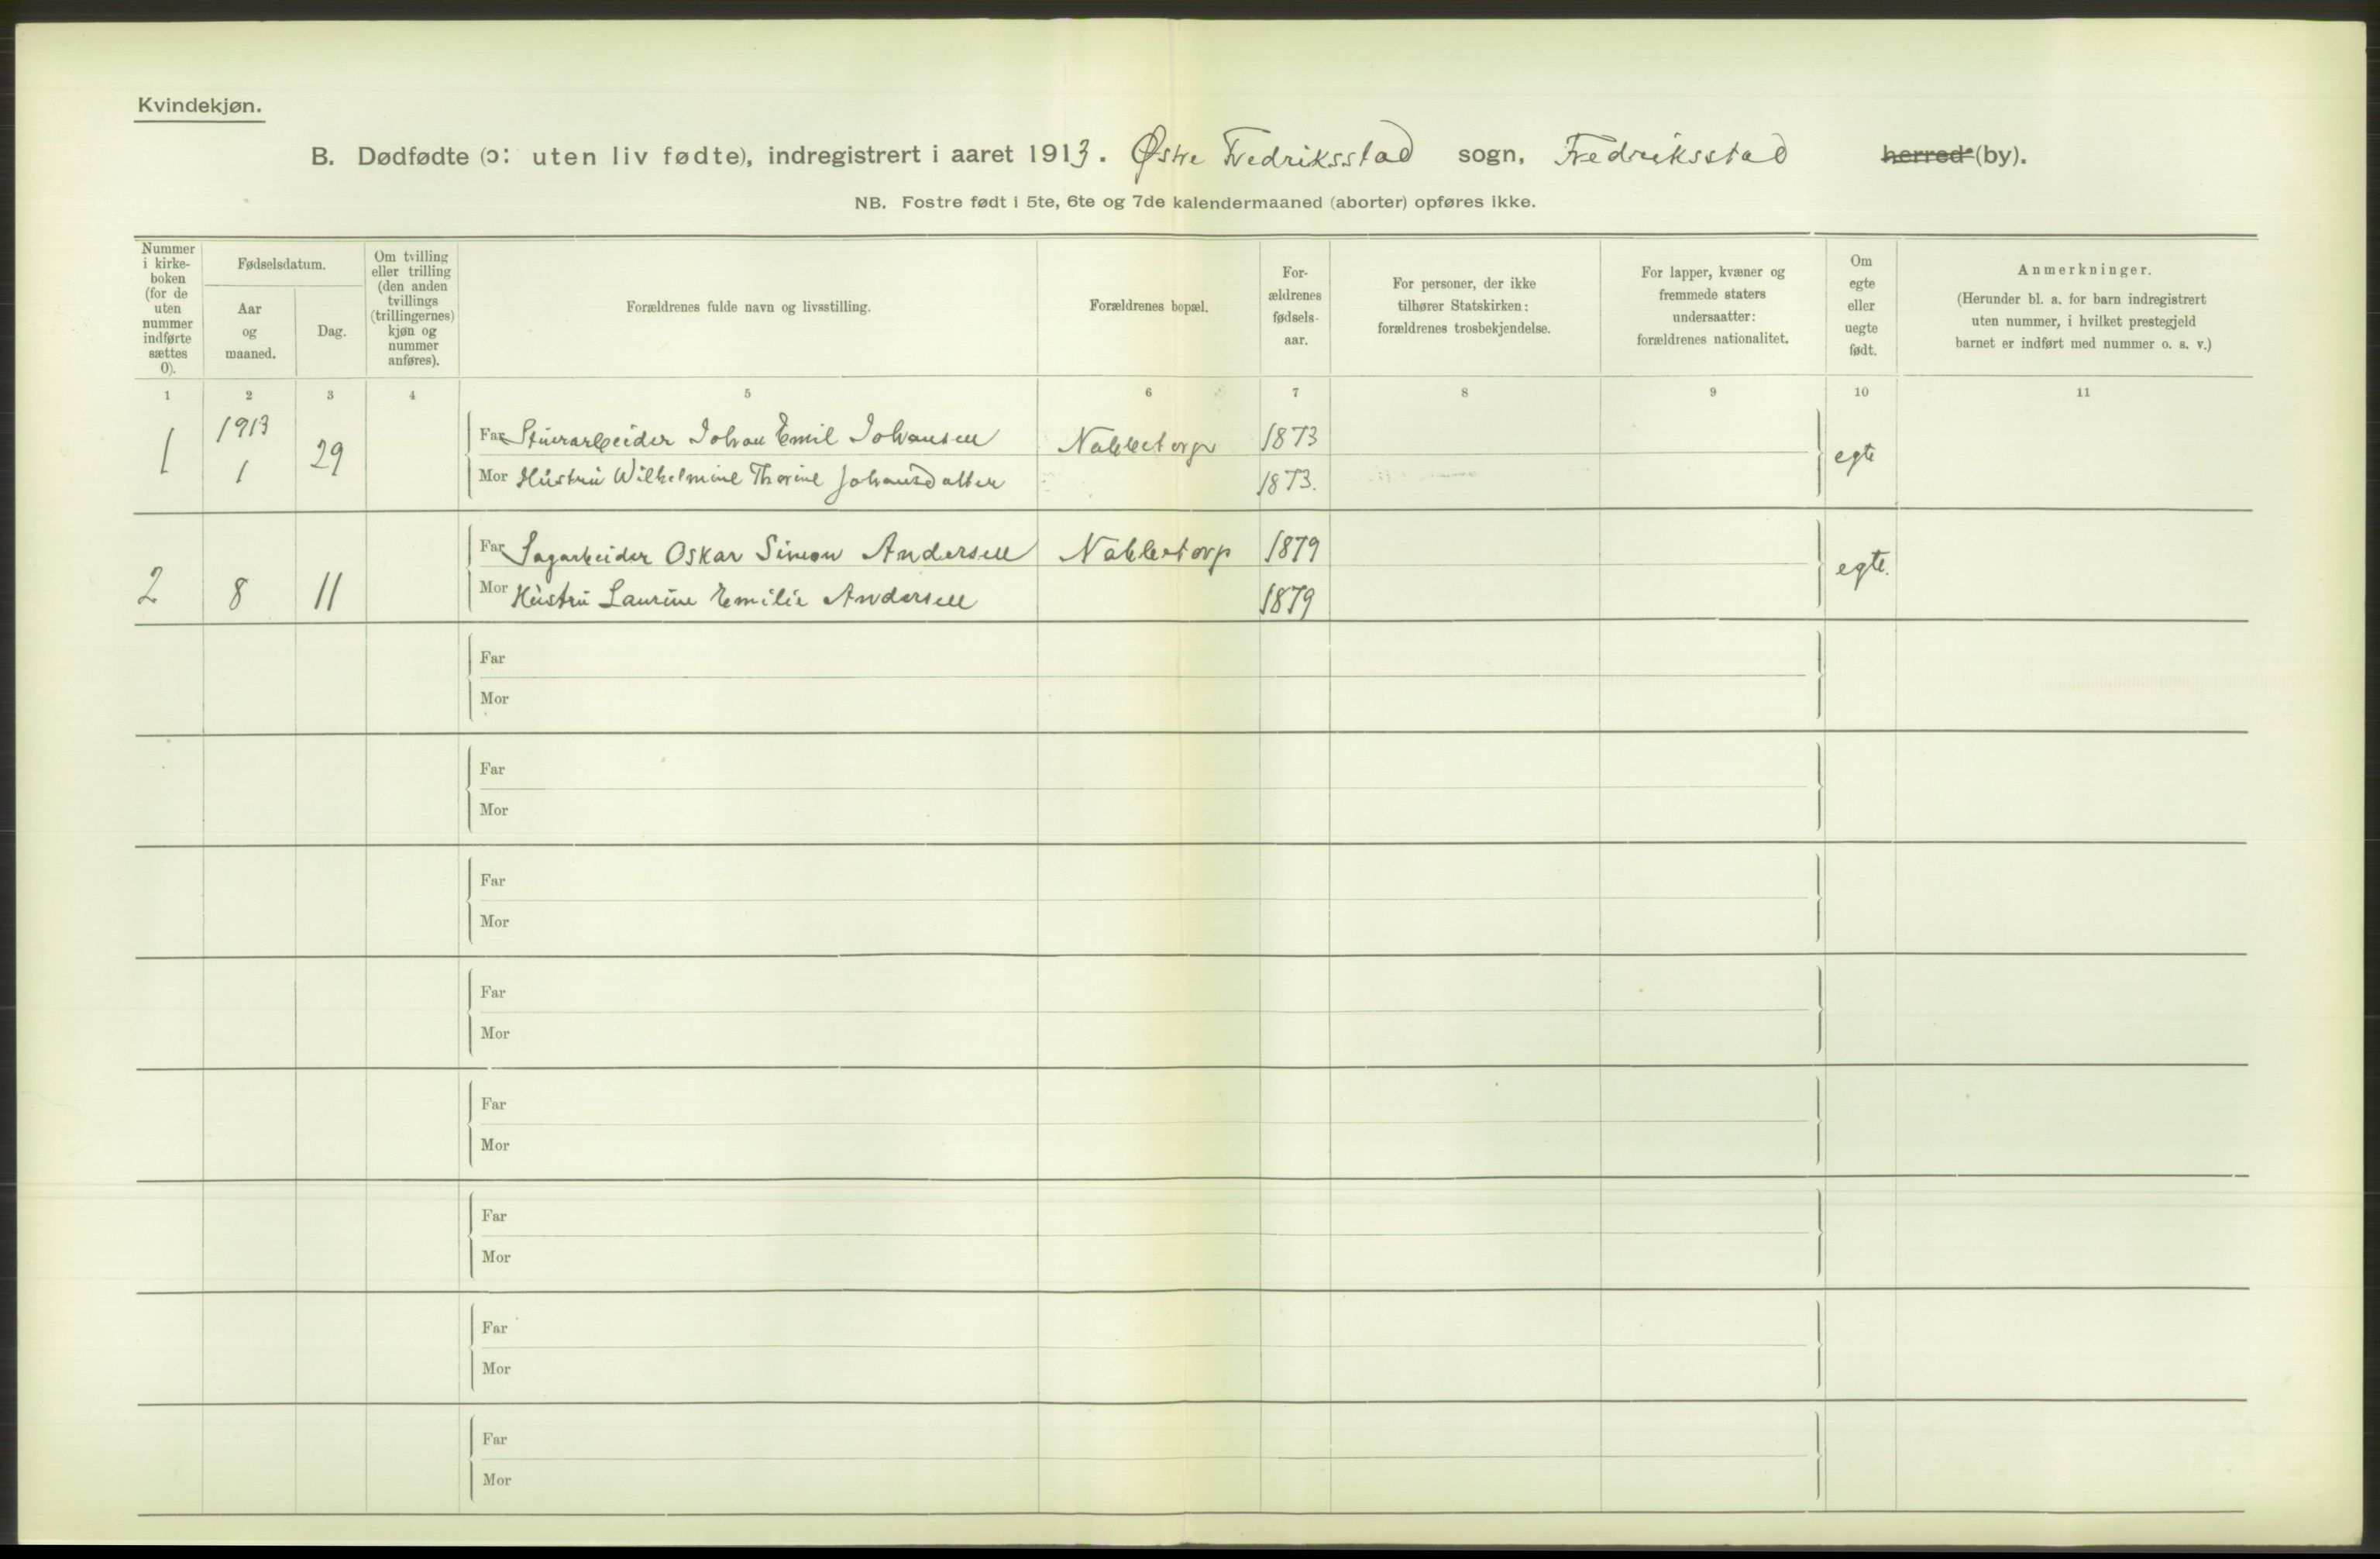 Kvindekjøn.
B. Dødfødte (ɔ: uten liv fødte), indregistrert i aaret 1913. Østre Fredriksstad sogn, Fredriksstad herred (by).
NB. Fostre født i 5te, 6te og 7de kalendermaaned (aborter) opføres ikke.
Nummer
i kirke-
boken
(for de
uten
nummer
indførte
sættes
0).
Fødselsdatum.
Aar
og
maaned.
Dag.
Om tvilling
eller trilling
(den anden
tvillings
(trillingernes)
kjøn og
nummer
anføres).
Forældrenes fulde navn og livsstilling.
Forældrenes bopæl.
For-
ældrenes
fødsels-
aar.
For personer, der ikke
tilhører Statskirken:
forældrenes trosbekjendelse.
For lapper, kvæner og
fremmede staters
undersaatter:
forældrenes nationalitet.
Om
egte
eller
uegte
født.
Anmerkninger.
(Herunder bl. a. for barn indregistrert
uten nummer, i hvilket prestegjeld
barnet er indført med nummer o. s. v.)
1 2 3 4 5 6 7 8 9 10 11
1 1913 1 29 Far Stuerarbeider Johan Emil Johansen Nabbetorp 1873 egte
Mor Hustru Wilhelmine Thorine Johansdatter 1873.
2 8 11 Far Sagarbeider Oskar Simon Andersen Nabbetorp 1879 egte.
Mor Hustru Laurine Emilie Andersen 1879
Far
Mor
Far
Mor
Far
Mor
Far
Mor
Far
Mor
Far
Mor
Far
Mor
Far
Mor